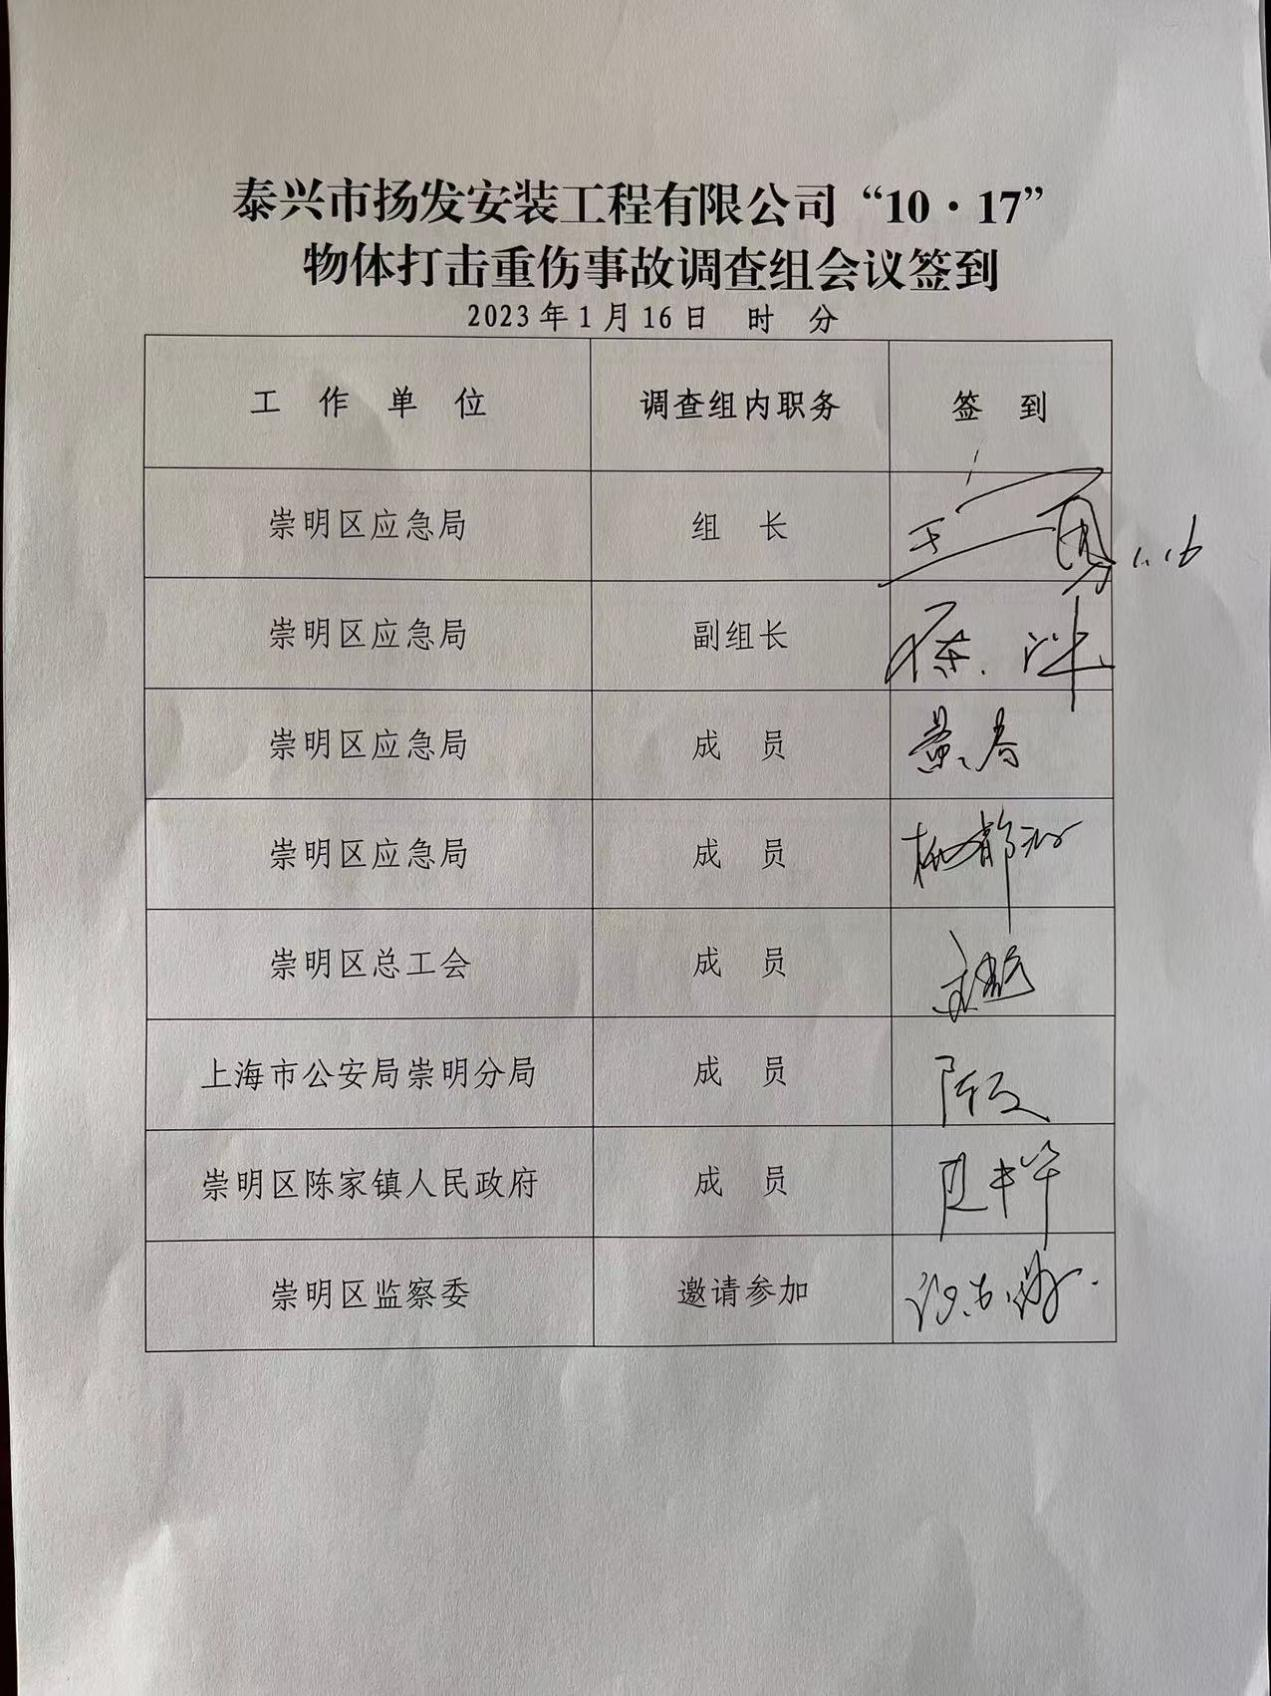 泰兴市扬发安装工程有限公司“10·17”
物体打击重伤事故调查组会议签到
2023年1月16日 时 分
工作单位 调查组内职务 签到
崇明区应急局 组长
1.16
崇明区应急局 副组长
崇明区应急局 成员
崇明区应急局 成员
崇明区总工会 成员
上海市公安局崇明分局 成员
崇明区陈家镇人民政府 成员
崇明区监察委 邀请参加